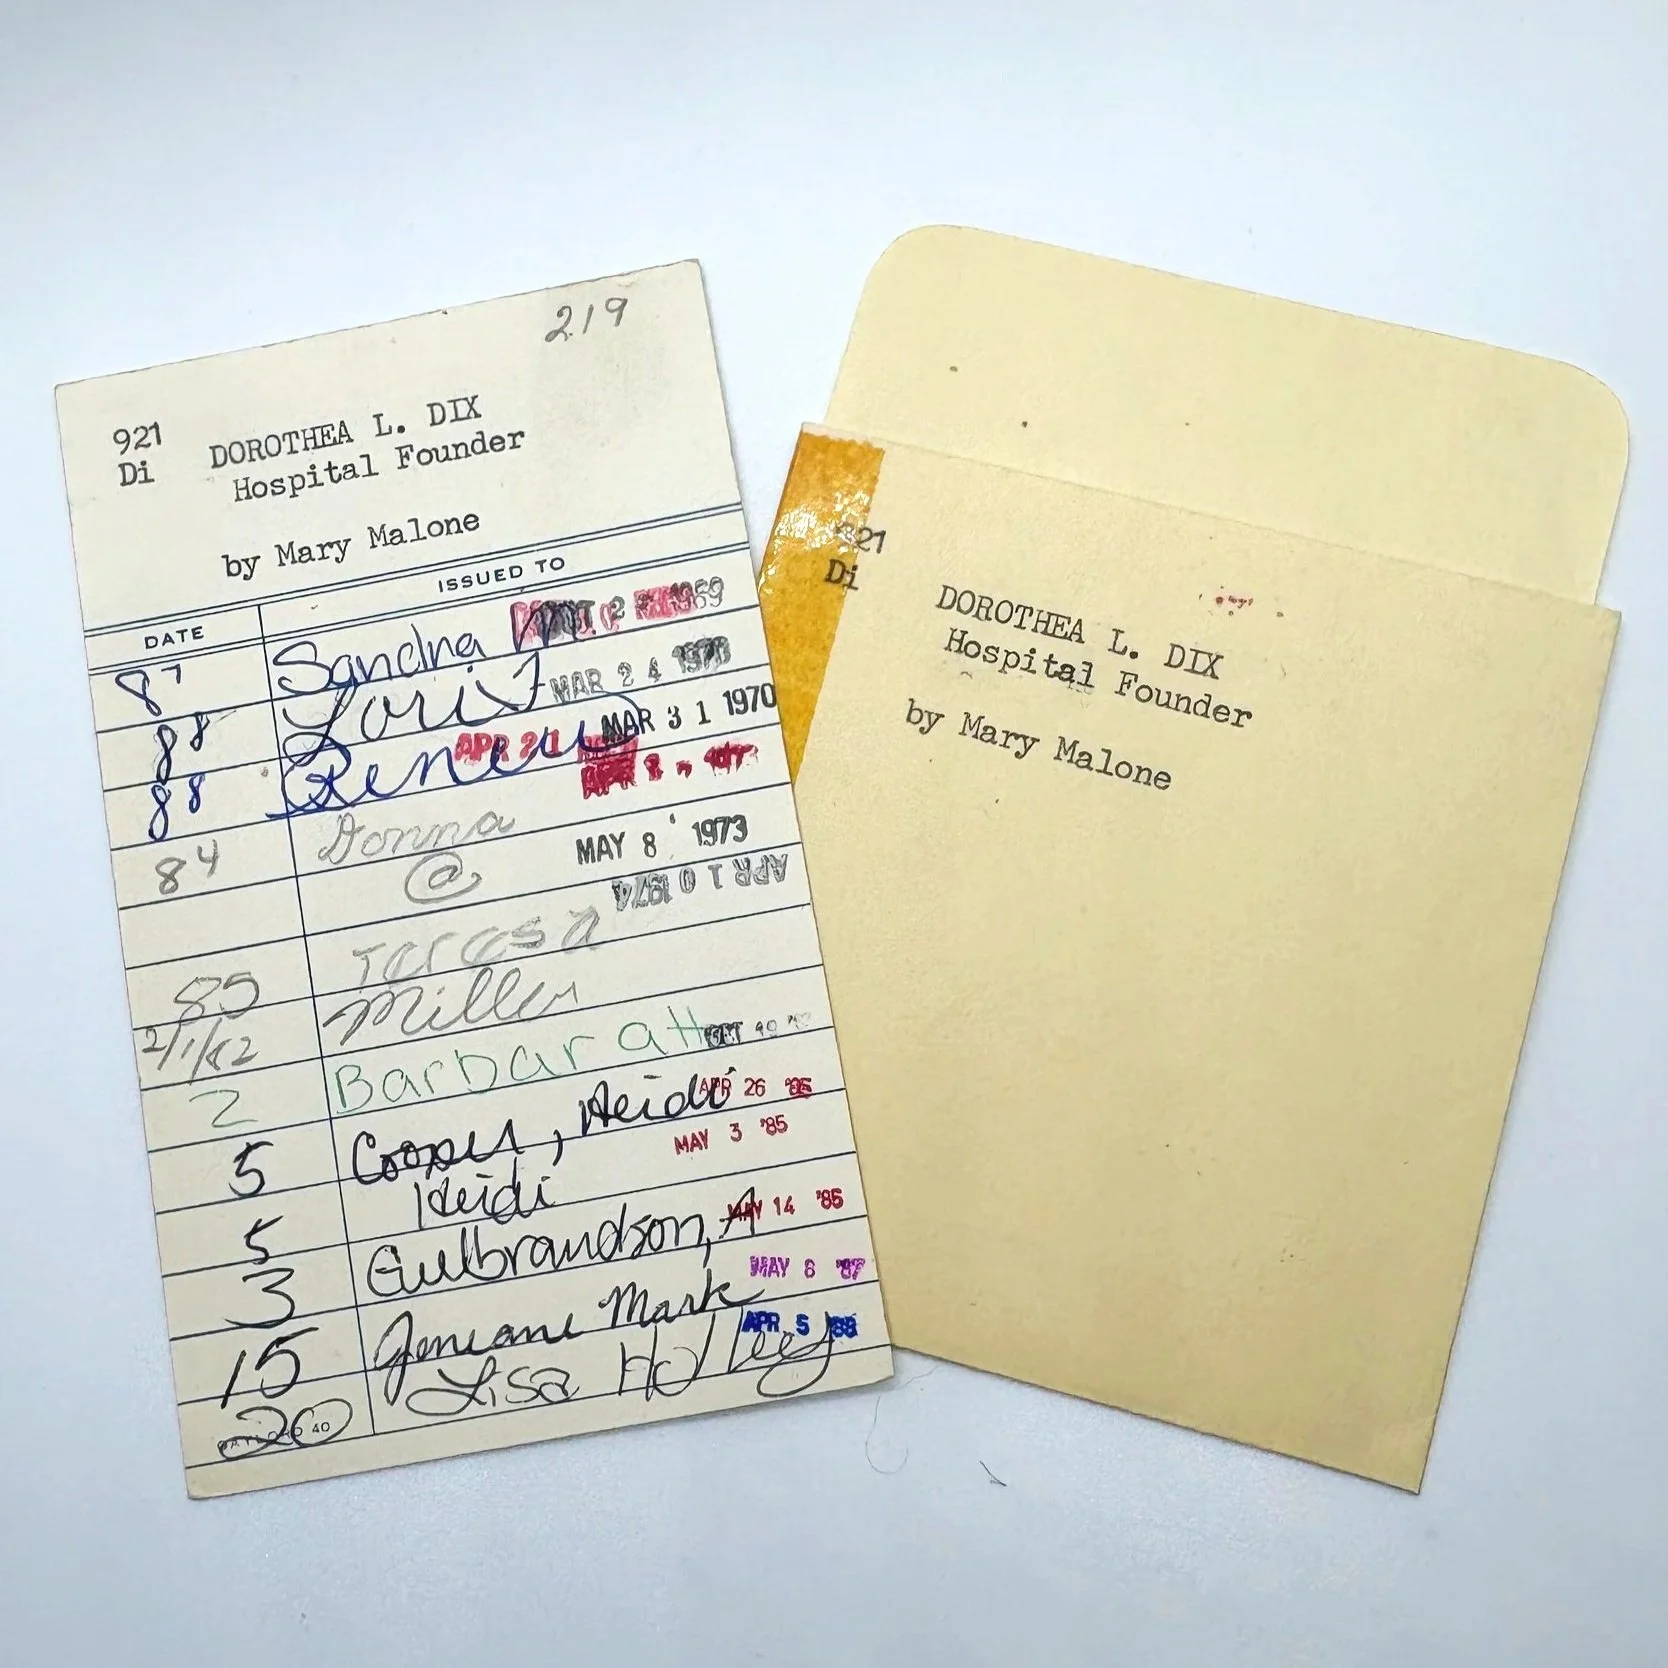 219
921 DOROTHEA L. DIX
Di Hospital Founder
by Mary Malone
DATE ISSUED TO
87 Sandra M. 1969
88 Lori J MAR 24 1970
MAR 31 1970
88 Renee APR
APR
84 Donna MAY 8 1973
@ APR 10 1974
85 Teresa
2/1/82 Miller
2 Barbara H OCT
5 Cooper, Heidi APR 26 '85
5 Heidi MAY 3 '85
3 Gulbrandson, A MAY 14 '85
15 Mark MAY 6 '87
20 Lisa Holley APR 5 '88
40
921
Di
DOROTHEA L. DIX
Hospital Founder
by Mary Malone